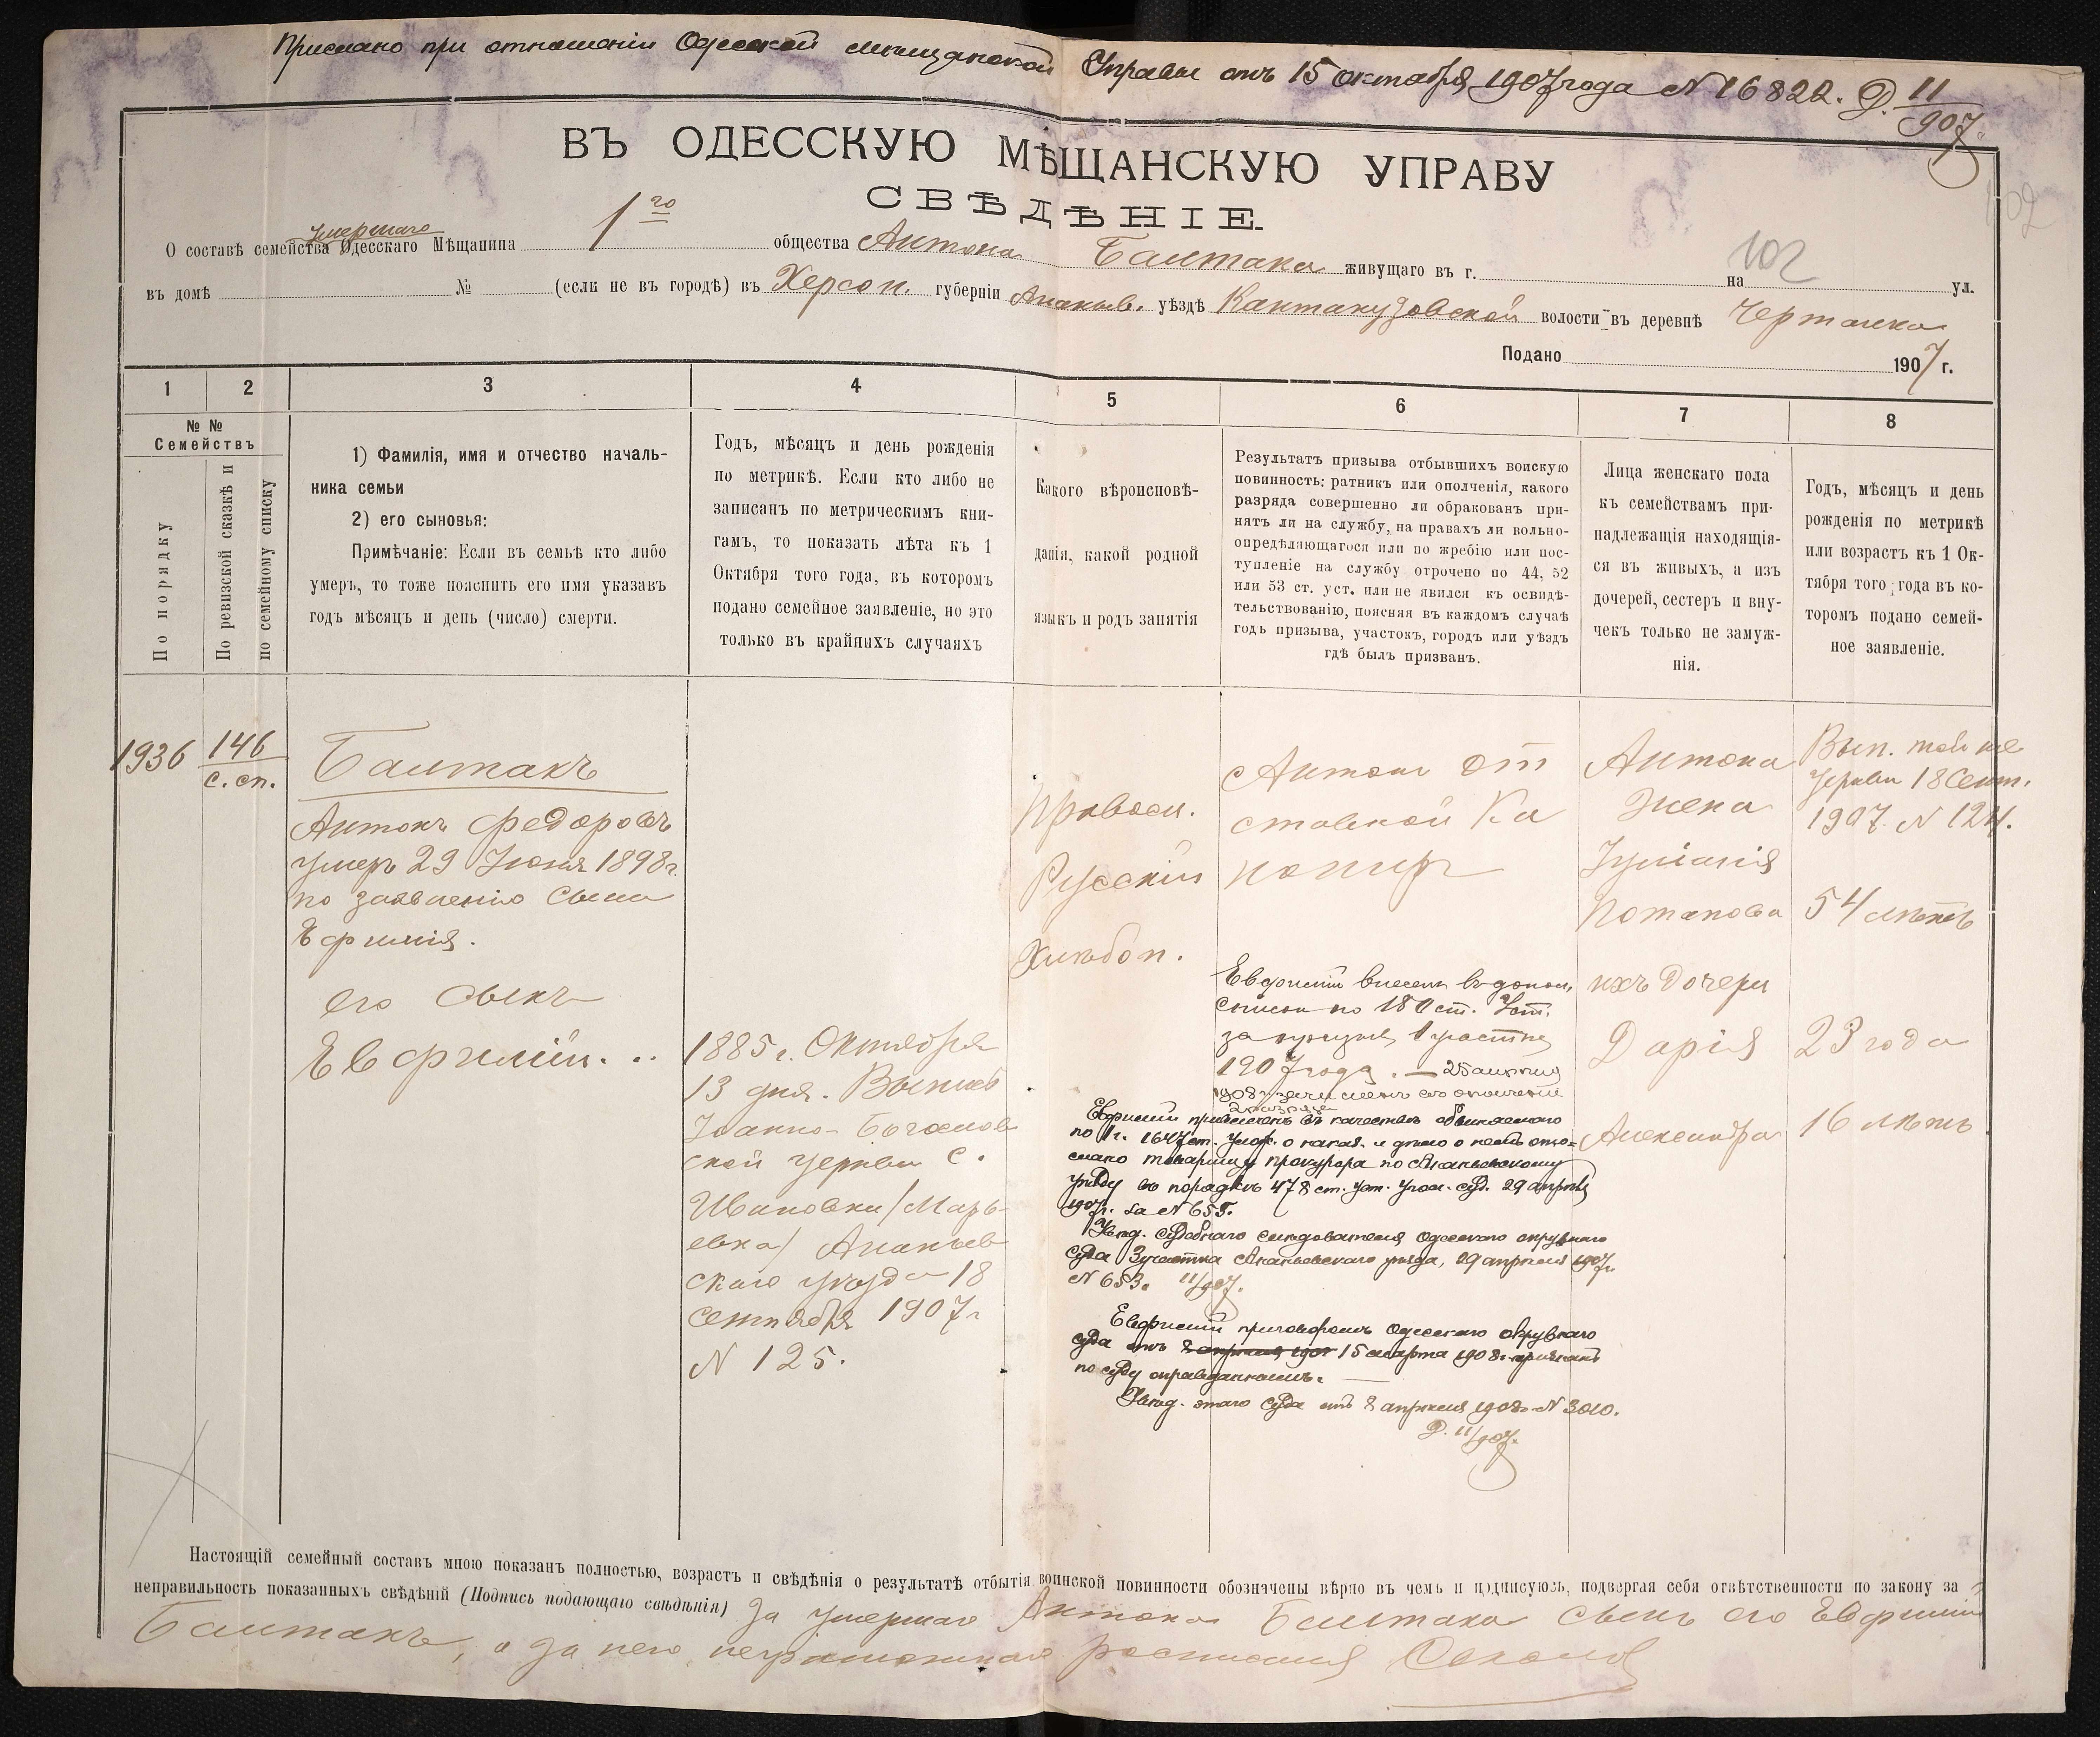 Прислано при отношеніи Одесской мѣщанской Управы отъ 15 октября 1907 года № 16822. Д. 11/907.
ВЪ ОДЕССКУЮ МѢЩАНСКУЮ УПРАВУ
СВѢДѢНІЕ.
102
умершаго
О составѣ семейства Одесскаго Мѣщанина 1го общества Антона Балтака живущаго въ г. на ул.
102
въ домѣ № (если не въ городѣ) въ Херсон. губерніи Ананьев. уѣздѣ Кантакузовской волости въ деревнѣ
Подано 1907 г.
1 2 3 4 5 6 7 8
№ №
Семействъ
По порядку
По ревизской сказкѣ и
по семейному списку
1) Фамилія, имя и отчество началь-
ника семьи
2) его сыновья:
Примѣчаніе: Если въ семьѣ кто либо
умеръ, то тоже пояснить его имя указавъ
годъ мѣсяцъ и день (число) смерти.
Годъ, мѣсяцъ и день рожденія
по метрикѣ. Если кто либо не
записанъ по метрическимъ кни-
гамъ, то показать лѣта къ 1
Октября того года, въ которомъ
подано семейное заявленіе, но это
только въ крайныхъ случаяхъ
Какого вѣроисповѣ-
данія, какой родной
языкъ и родъ занятія
Результатъ призыва отбывшихъ воискую
повинность: ратникъ или ополченія, какого
разряда совершенно ли обракованъ при-
нятъ ли на службу, на правахъ ли вольно-
опредѣляющагося или по жребію или пос-
тупленіе на службу отрочено по 44, 52
или 53 ст. уст. или не явился къ освидѣ-
тельствованію, поясняя въ каждомъ случаѣ
годъ призыва, участокъ, городъ или уѣздъ
гдѣ былъ призванъ.
Лица женскаго пола
къ семействамъ при-
надлежащія находящія-
ся въ живыхъ, а изъ
дочерей, сестеръ и вну-
чекъ только не замуж-
нія.
Годъ, мѣсяцъ и день
рожденія по метрикѣ
или возрастъ къ 1 Ок-
тября того года въ ко-
торомъ подано семей-
ное заявленіе.
1936
146
с. сп.
Балтакъ
Антонъ Федоровъ
умеръ 29 Іюня 1898 г.
по заявленію сына
Ефимія.
его сынъ
Евфимій...
1885 г. Октября
13 дня. Выпись
Іоанно-Богослов
ской церкви с.
Ивановки /Марь-
евка/ Ананьев
скаго уѣзда 18
сентября 1907 г
№ 125.
Правосл.
Русскій
Хлѣбоп.
Антонъ от
ставной Ка
нониръ
Евфимій внесенъ въ допол.
списокъ по 180 ст. Уст.
за призывъ 1 участка
1907 года. — 25 апрѣля
Евфимій привлеченъ въ качествѣ обвиняемаго
по 1 ч. 1647 ст. улож. о наказ. и дѣло о немъ ото-
слано товарищу прокурора по Ананьевскому
уѣзду въ порядкѣ 478 ст. уст. угол. суд. 29 апрѣля
1907 г. за № 653.
Увѣд. Судебнаго слѣдователя Одесскаго окружнаго
суда 3 участка Ананьевскаго уѣзда, 29 апрѣля 1907 г.
№ 653. 11/907.
Евфимій приговоромъ Одесскаго окружнаго
суда отъ 8 апрѣля 1908 15 марта 1908 г. признанъ
по суду оправданнымъ.
Увѣд. этого суда отъ 8 апрѣля 1908 г. № 3010.
Д. 11/907.
Антона
жена
Іуліанія
Потапова
ихъ дочери
Дарія
Александра
Вып. той же
церкви 18 Сент.
1907 № 124.
54 лѣтъ
23 года
16 лѣтъ
Настоящій семейный составъ мною показанъ полностью, возрастъ и свѣдѣнія о результатѣ отбытія воинской повинности обозначены вѣрно въ чемъ и подписуюсь, подвергая себя отвѣтственности по закону за
неправильность показанныхъ свѣдѣній (Подпись подающаго свѣдѣнія) За умершаго Антона Балтака сынъ его Евфимій
Балтакъ, а за него неграмотнаго росписался